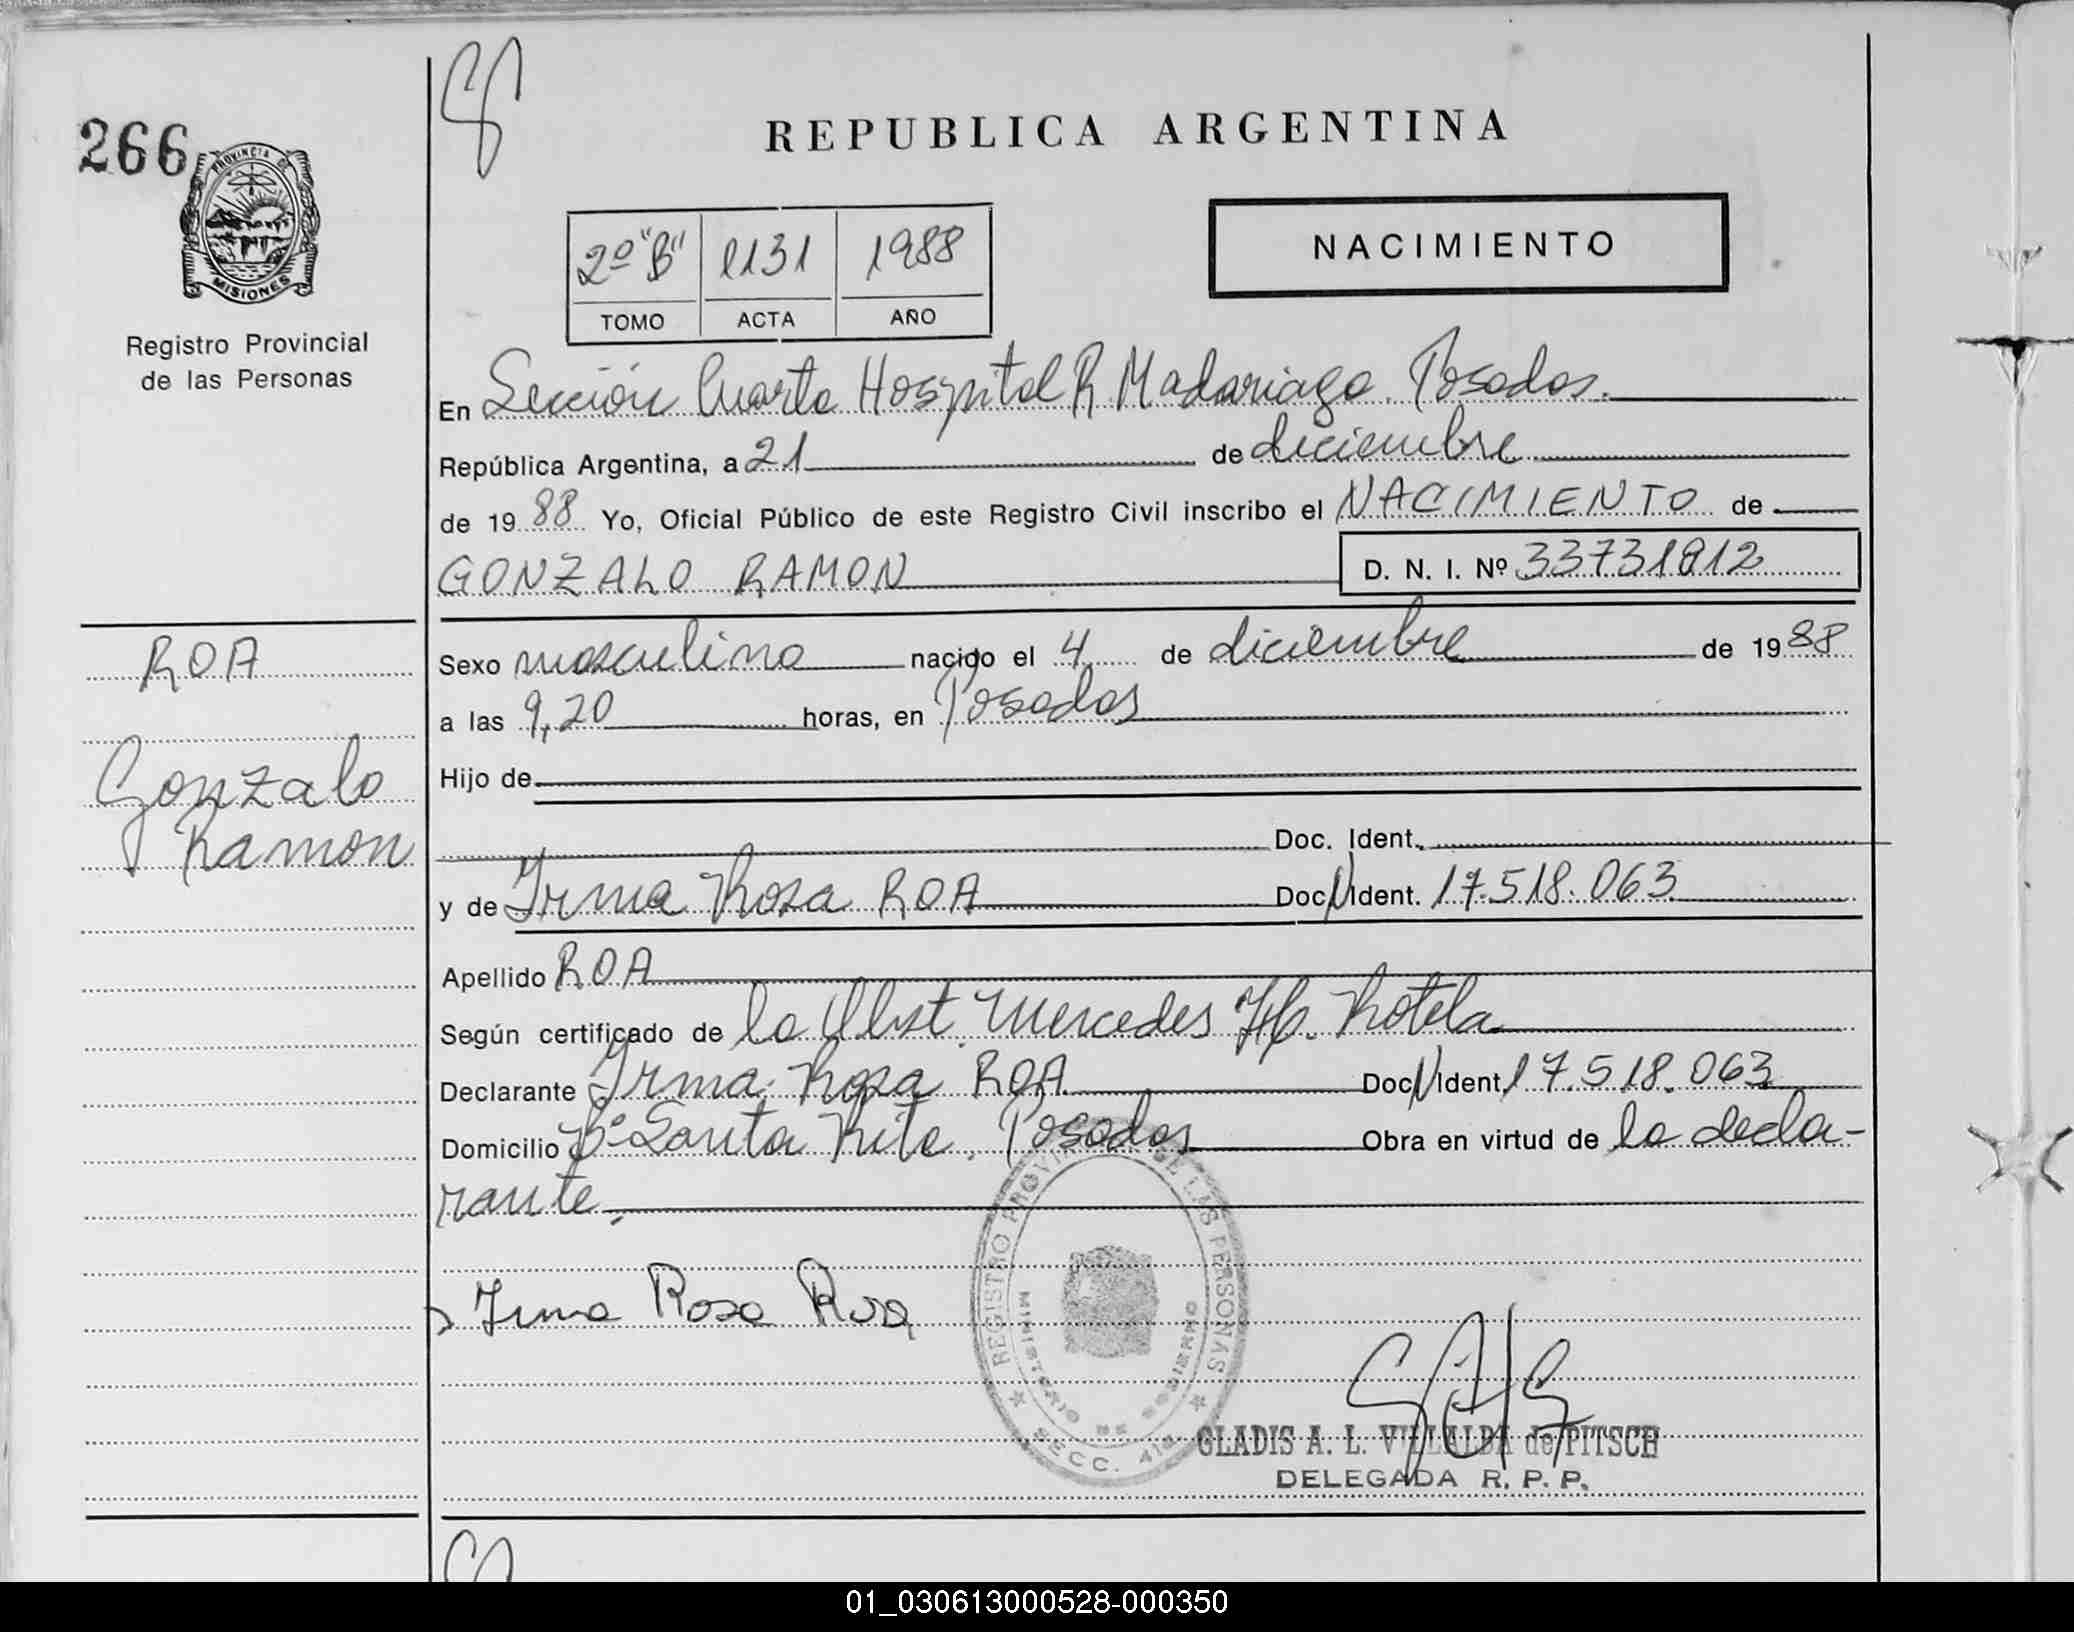 266
PROVINCIA DE
MISIONES
Registro Provincial
de las Personas
REPUBLICA ARGENTINA
NACIMIENTO
2º "B" 1131 1988
TOMO ACTA AÑO
En Sección Cuarta Hospital R. Madariaga. Posadas.
República Argentina, a 21 de diciembre
de 1988 Yo, Oficial Público de este Registro Civil inscribo el NACIMIENTO de
GONZALO RAMON D. N. I. Nº 33731812
ROA
Gonzalo
Ramon
Sexo masculino nacido el 4 de diciembre de 1988
a las 9,20 horas, en Posadas
Hijo de
Doc. Ident.
y de Irma Rosa ROA Doc. Ident. 17.518.063
Apellido ROA
Según certificado de la Obst. Mercedes H. Rotela
Declarante Irma Rosa ROA Doc. Ident. 17.518.063
Domicilio Bº Santa Rita. Posadas Obra en virtud de la decla-
rante.
Irma Rosa Roa
REGISTRO PROVINCIAL DE LAS PERSONAS
MINISTERIO DE GOBIERNO
SECC. 4ta
GLADIS A. L. VILLALBA de PITSCH
DELEGADA R. P. P.
01_030613000528-000350